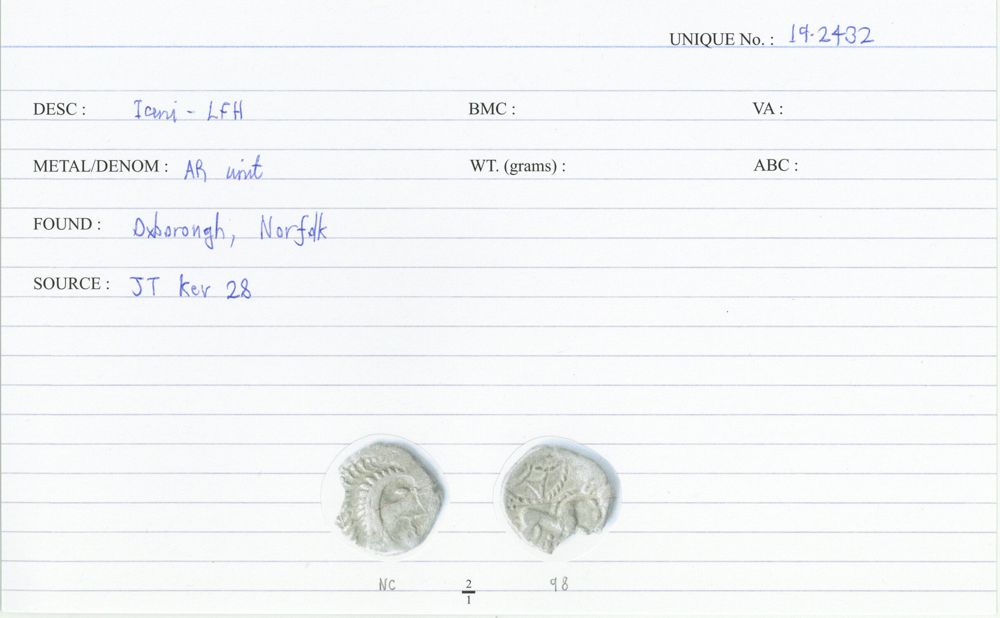 UNIQUE No. : 19.2432
DESC : Iceni - LFH BMC : VA :
METAL/DENOM : AR unit WT. (grams) : ABC :
FOUND : Oxborough, Norfolk
SOURCE : JT Kev 28
NC 2/1 98